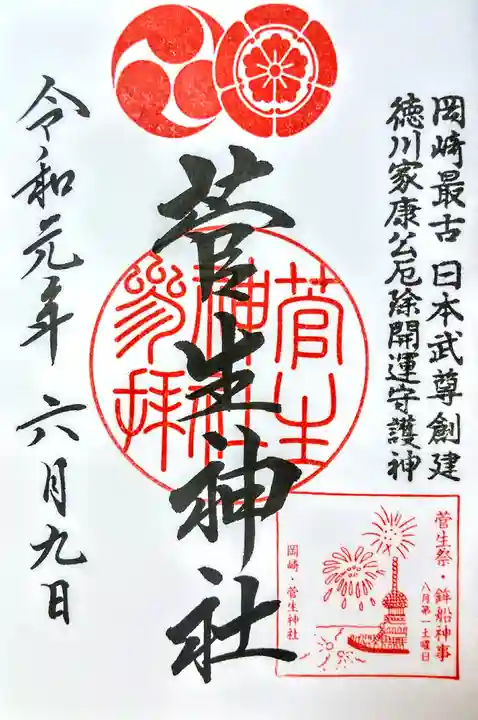 岡崎最古 日本武尊創建
徳川家康公厄除開運守護神
菅生神社
菅生
神社
参拝
令和元年 六月九日
菅生祭・鉾船神事
八月第一土曜日
岡崎・菅生神社